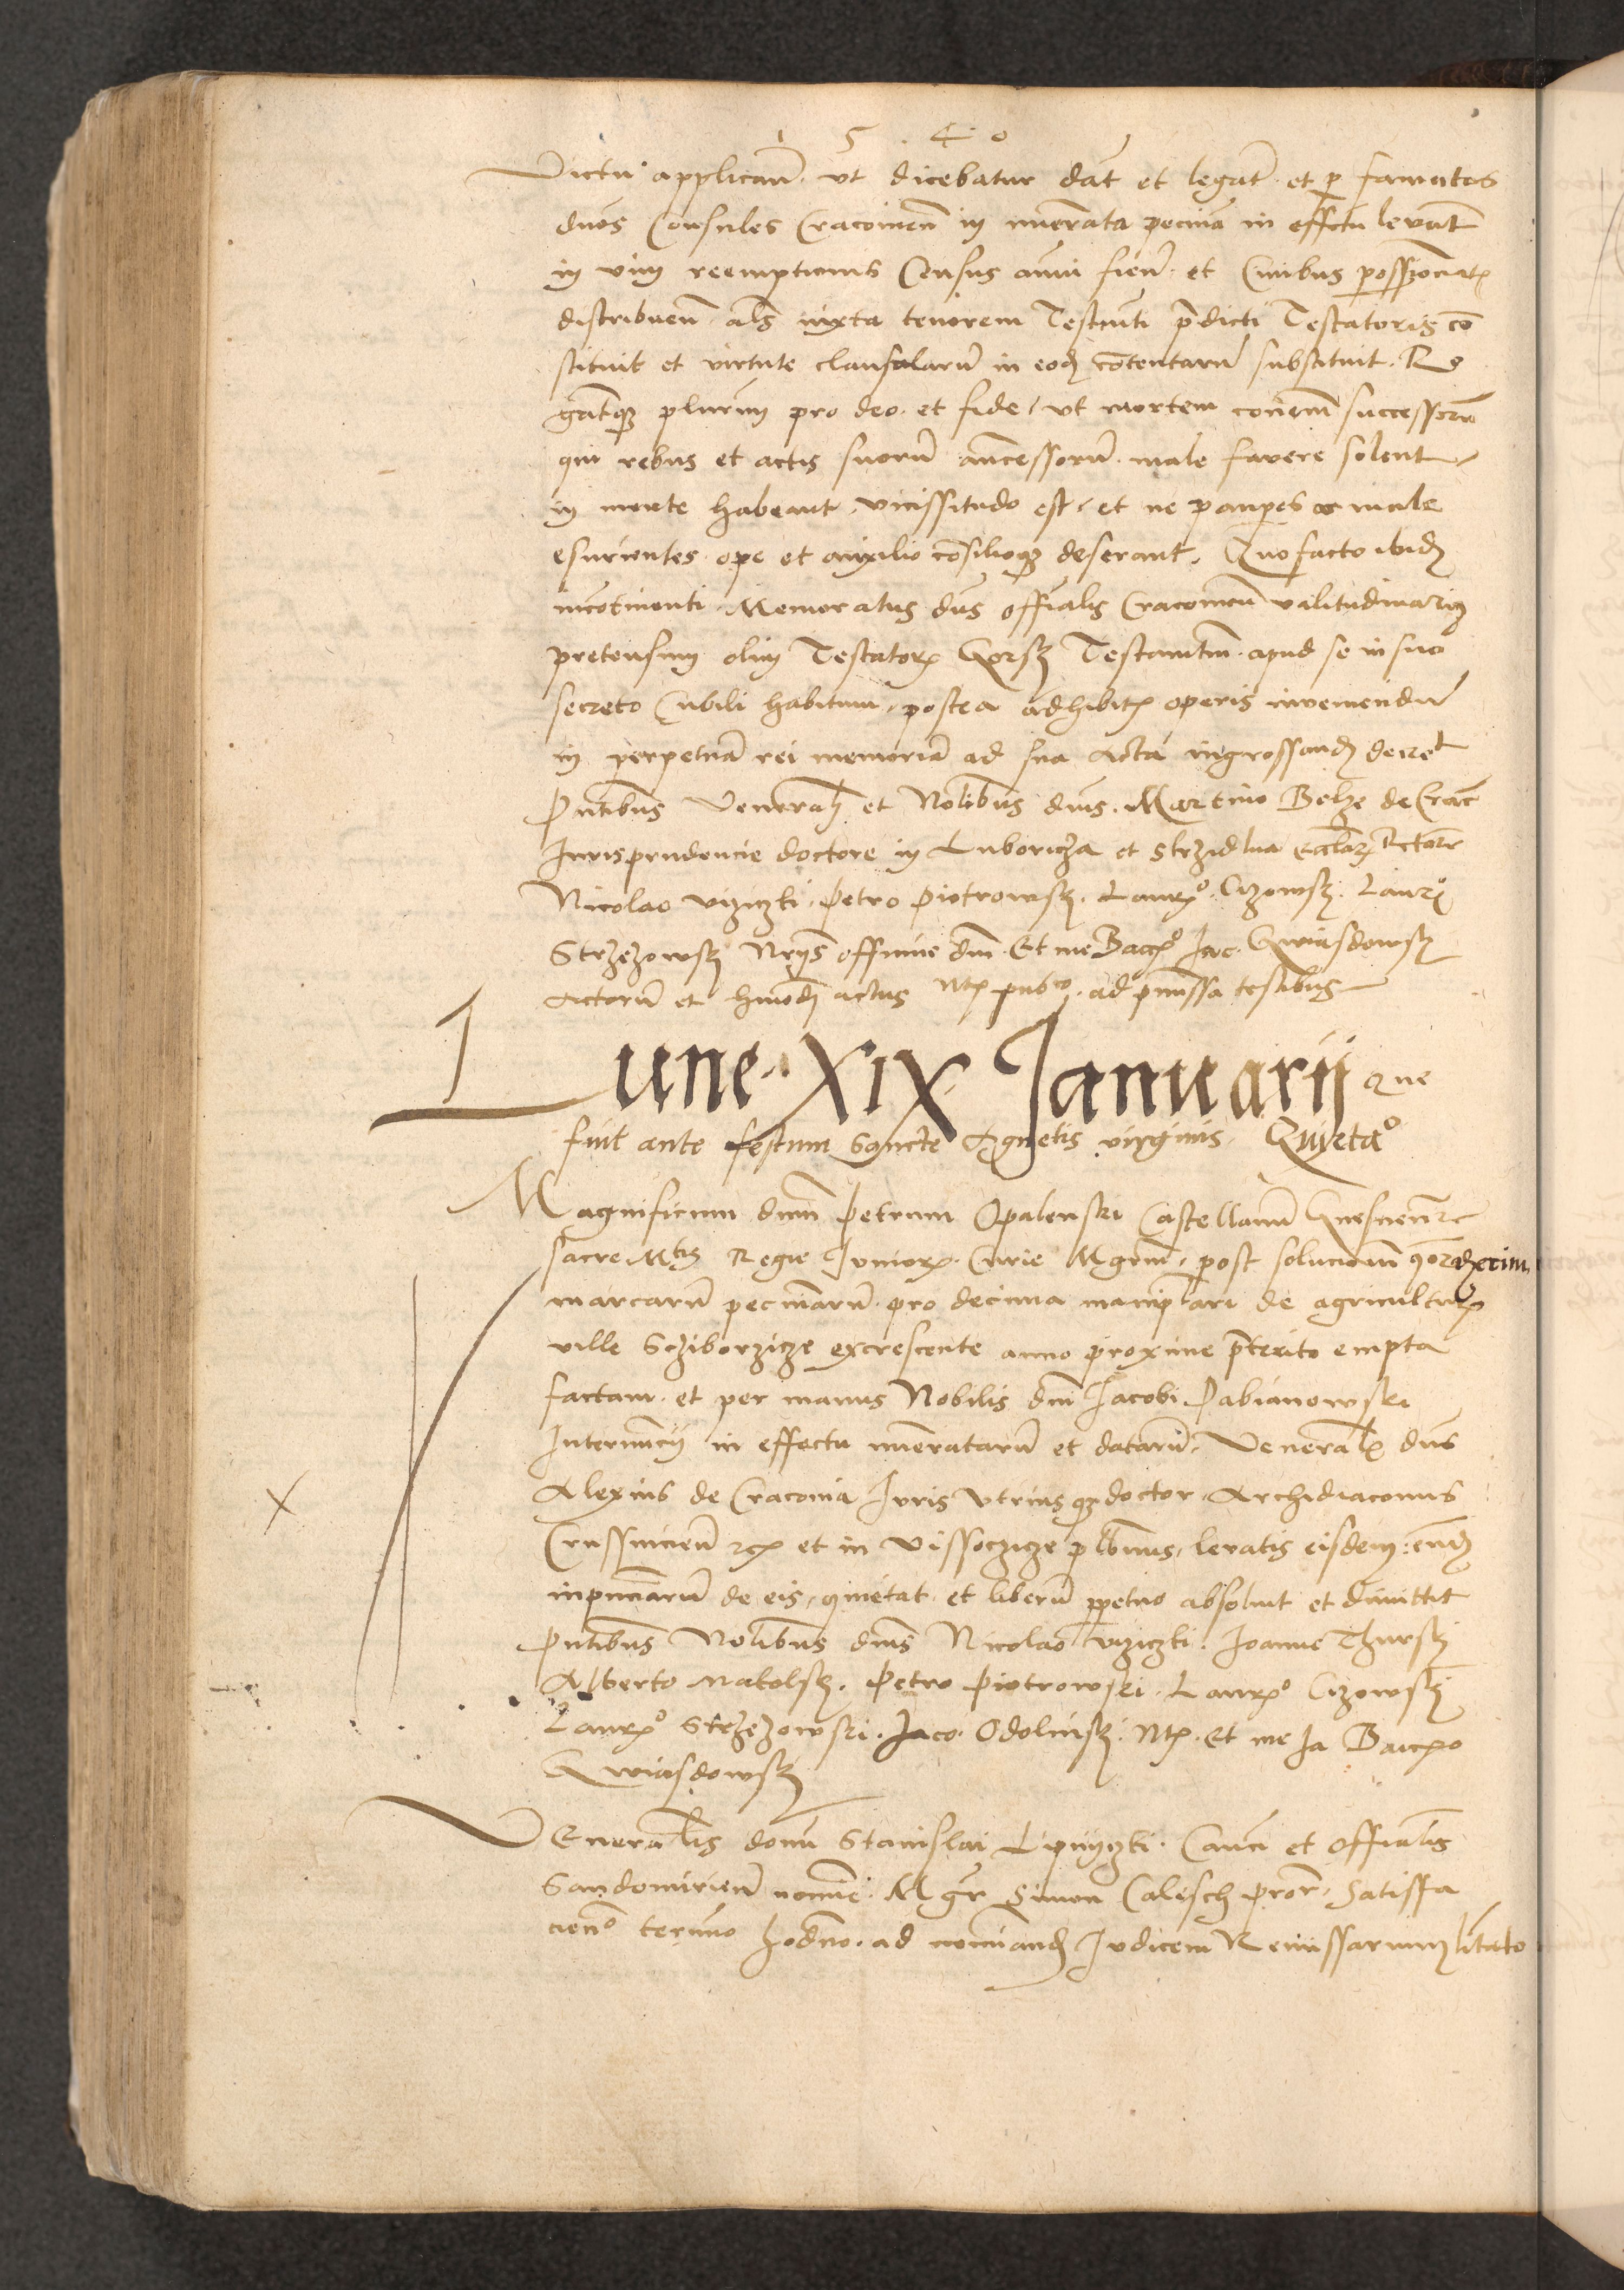 1 5 4 0
Victui applicand ut dicebatur dat et legat et p famatos
duos Consules Cracovien in numerata pecunia in effectu levat
in vim reemptionis Census annui fiend et Civibus possessionatis
distribuend als iuxta tenorem Testamti pdicti Testatoris con
stituit et virtute clausularum in eod contentarum substituit. Ro
gatq plurim pro deo et fide ut mortem conem successorum
qui rebus et actis suorum ancessorum male favere solent
in mente habeant vicissitudo est et ne paupes male
esurientes ope et auxilio consilioq deserant. Quo facto ibidem
incontinenti Memoratus dns offialis Cracovien valitudinarium
pretensum olim Testatoris Gorsky Testamtum apud se in suo
secreto Cubili habitum postea adhibitis operis inveniendum
in perpetuam rei memoriam ad sua Acta ingrossand decret
Pntibus Venerabi et Nobilibus dnis Martino Belze de Crac
Jurisprudencie doctore in Luboricza et Strzidlna Ecclarum Rectore
Nicolao Uziczki Petro Piotrowsky Lauro Cizowsky Lauro
Strzezowsky Nrys officine dni Et me Baccro Jac Gwiasdowsky
Actorum et hmodi actus Nto pubco ad pmissa testibus
Lune XIX Januarij Que
fuit ante festum Sancte Agnetis virginis Quieta
Magnificum dnm Petrum Opalenski Castellanum Gnesnen
sacre Mtis Regie Junioris Curie Mgrum post solucionem quordecim
marcarum pecuniarum pro decima manipulari de agriculturis
ville Scziborzicze excrescente anno proxime pterito empta
factam et per manus Nobilis dni Jacobi Pabianowski
Internuncij in effectu numeratarum et datarum Venerabilis dns
Alexius de Cracovia Juris Utriusq doctor Archidiaconus
Crussvicien et in Vissoczicze plbanus levatis eisdem eund
inpecuniarum de eis quietat et liberum ppetuo absolvit et dimittit
Pntibus Nobilibus dnis Nicolao Uziczki Joanne Thursky
Alberto Matolsky Petro Piotrowski Lauro Cizowsky
Lauro Strzezowski Jaco Odolinsky Nto Et me Ja Baccro
Gwiasdowsky
Venerabilis domini Stanislai Lipniczki Canci et Offialis
Sandomirien nomine Mgr Simon Calisch Pror Satisfa
ciendo termino hodierno ad nominand Judicem Remissarium lrato